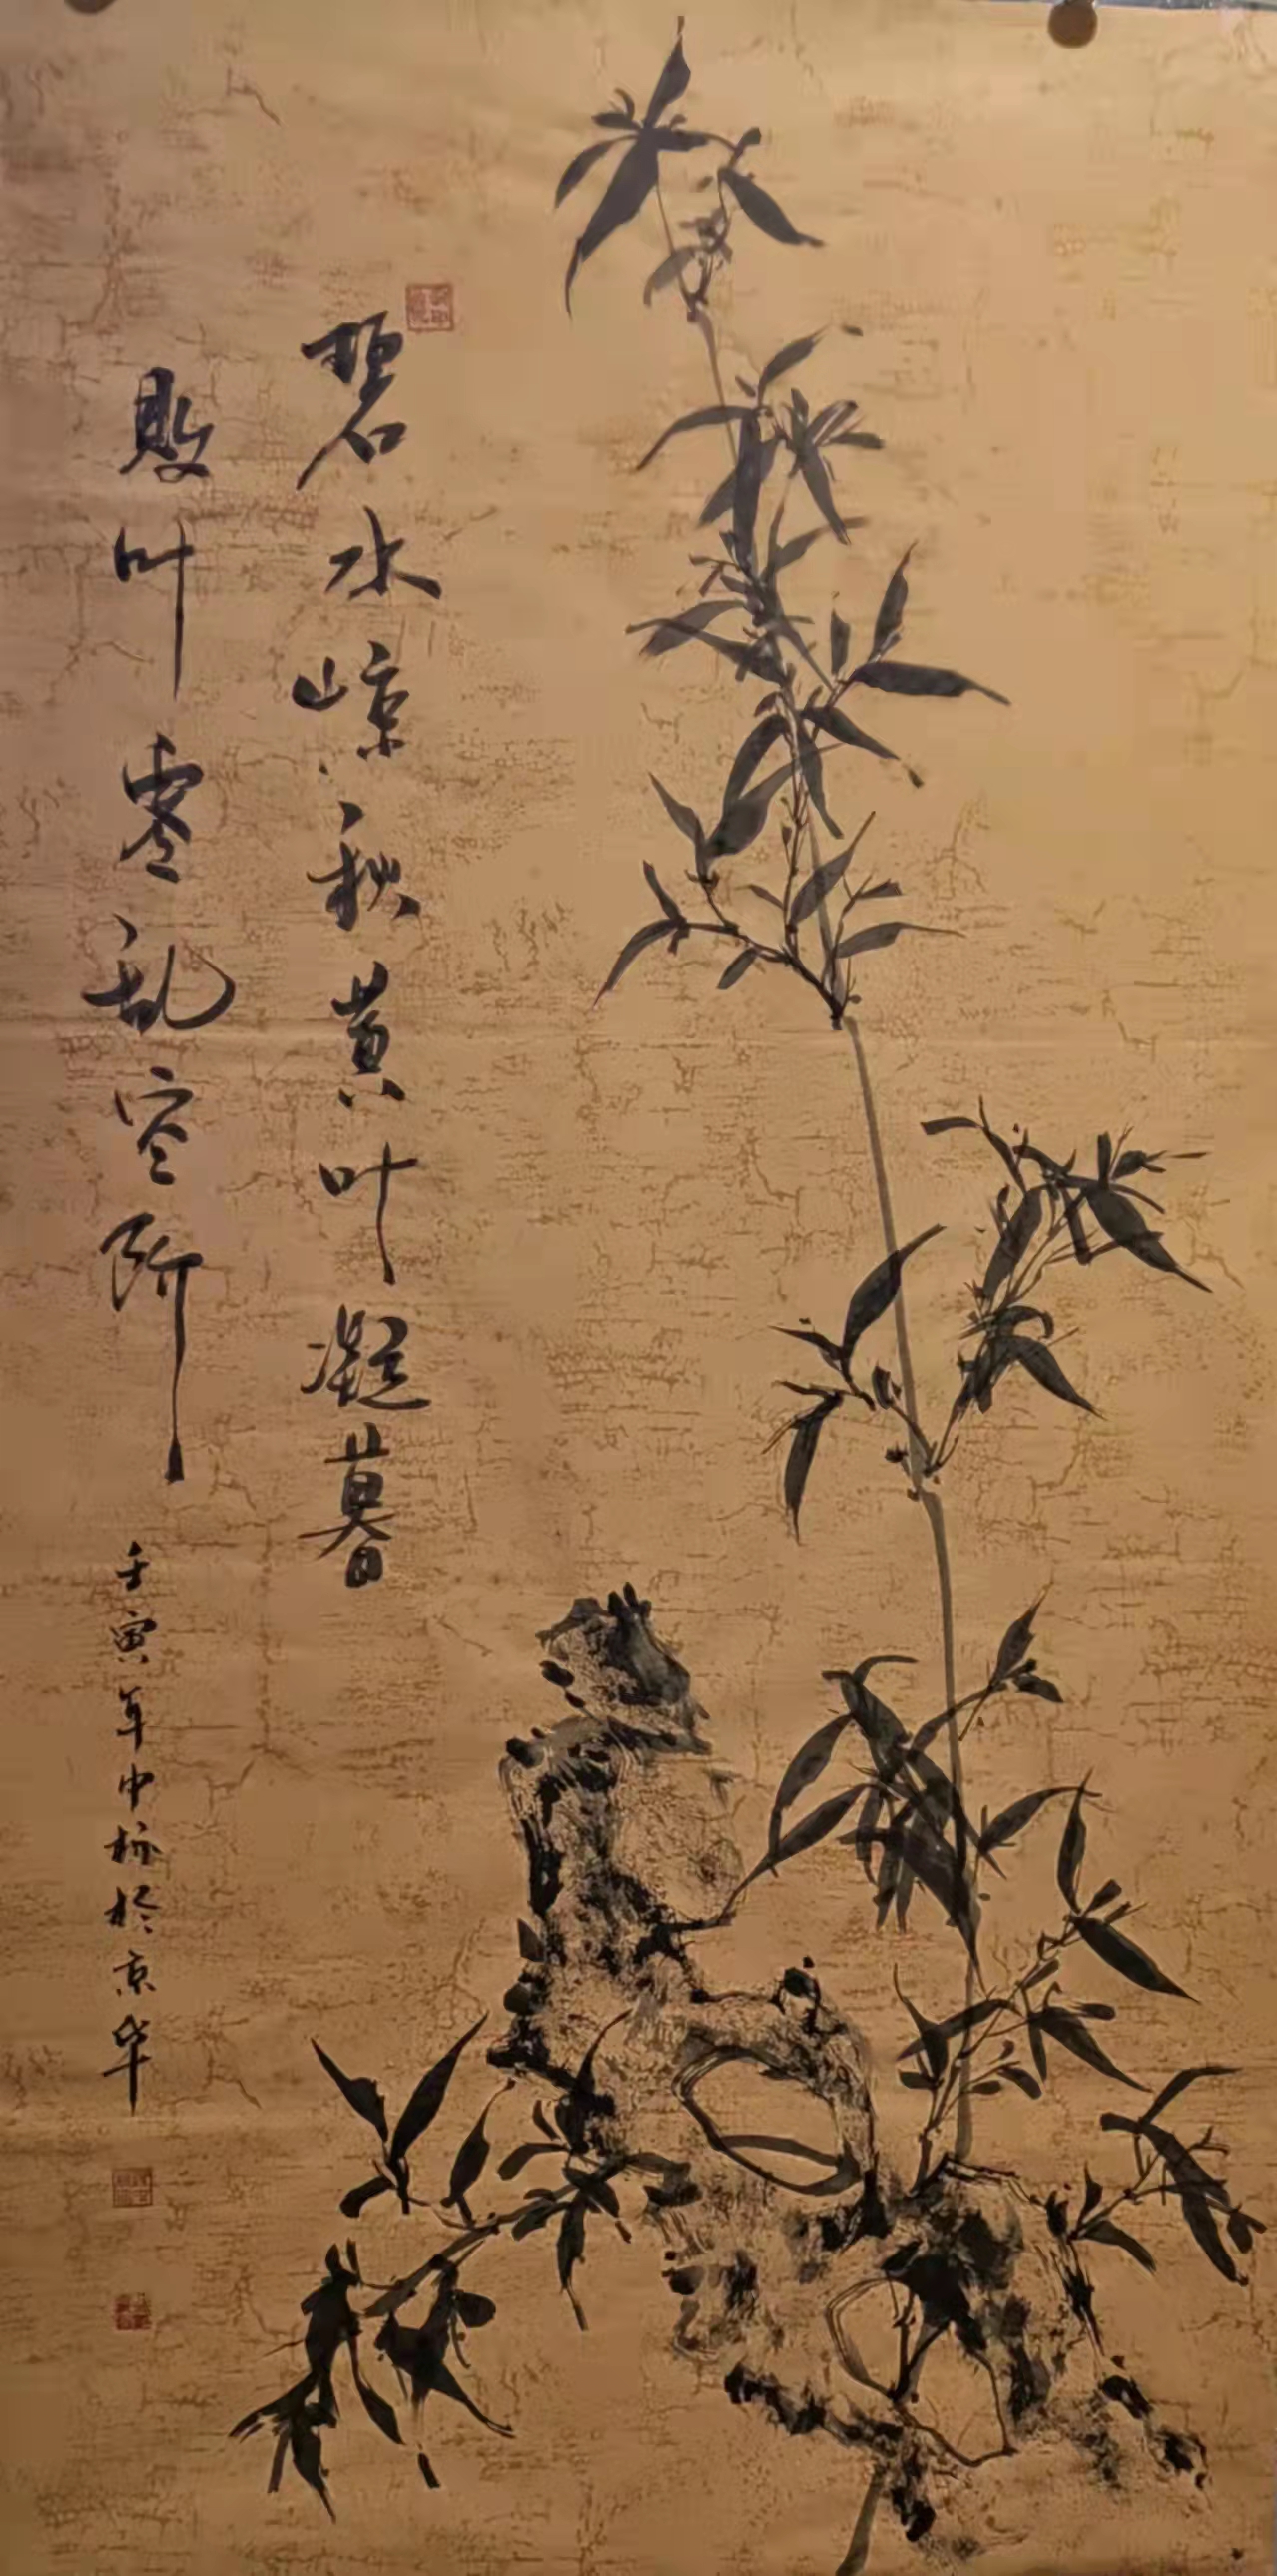 碧水惊秋黄叶凝暮
败叶零乱空阶
壬寅年中於京华